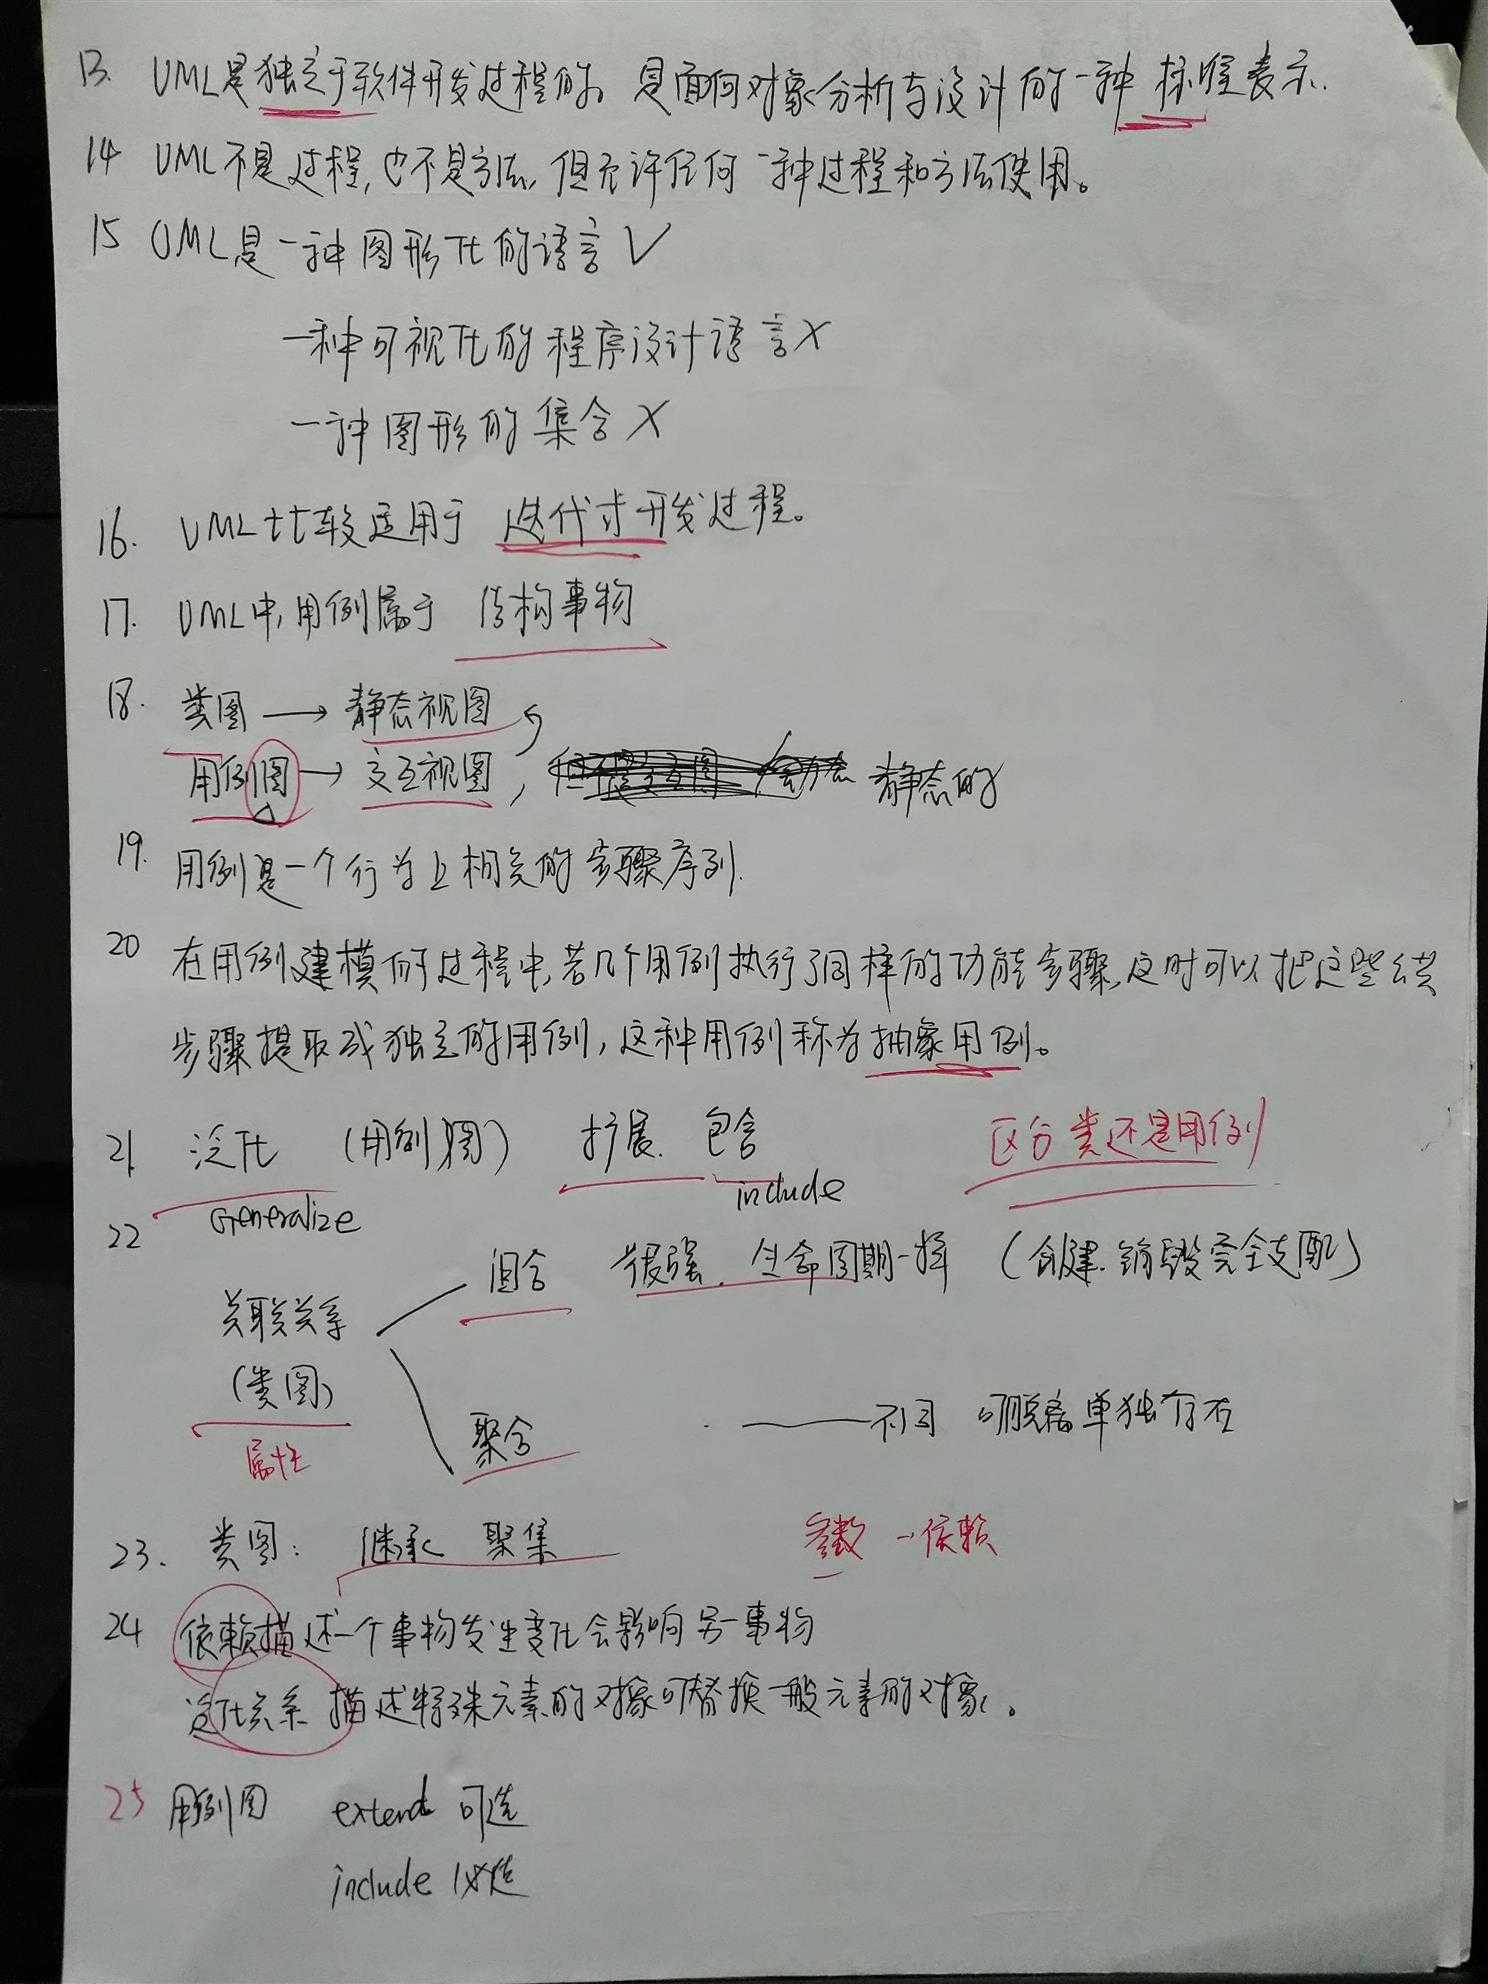 13. UML是独立于软件开发过程的。是面向对象分析与设计的一种 标准表示.
14 UML不是过程,也不是方法,但允许任何一种过程和方法使用。
15 UML是一种图形化的语言 √
一种可视化的程序设计语言 X
一种图形的集合 X
16. UML比较适用于 迭代式开发过程。
17. UML中,用例属于 结构事物
18. 类图 → 静态视图
用例图 → 交互视图, 静态的
19. 用例是一个行为上相关的步骤序列.
20 在用例建模的过程中,若几个用例执行了同样的功能步骤,这时可以把这些公共
步骤提取成独立的用例,这种用例称为抽象用例。
21 泛化 (用例图) 扩展. 包含 区分类还是用例
Generalize include
22 组合 很强. 生命周期一样 (创建.销毁完全支配)
关联关系
(类图)
属性
聚合 —— 不同 可脱离单独存在
23. 类图: 继承 聚集 参数 — 依赖
24 依赖描述一个事物发生变化会影响另一事物
泛化关系 描述特殊元素的对象可替换一般元素的对象。
25 用例图 extend 可选
include 必选